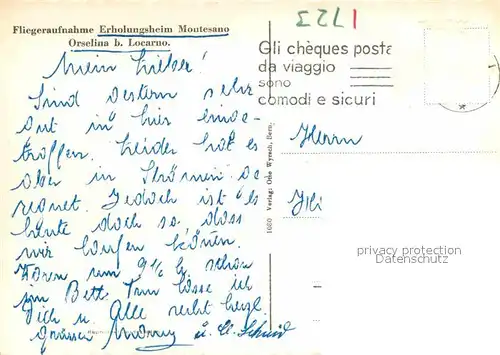 Fliegeraufnahme Erholungsheim Montesano
Orselina b. Locarno.
Mein Lieber!
Sind gestern sehr
gut in hier einge-
troffen. Leider hat es
aber in Strömen ge
regnet. Jedoch ist es
heute doch so, dass
wir laufen können.
Waren um 9½ h schon
im Bett. Nun lasse ich
Dich u Alle recht herzl.
grüssen
u. Cl. Schmid
1723
Gli chèques poste
da viaggio
sono
comodi e sicuri
1650 Verlag: Otto Wyrsch, Bern.
Herrn
privacy protection
Datenschutz